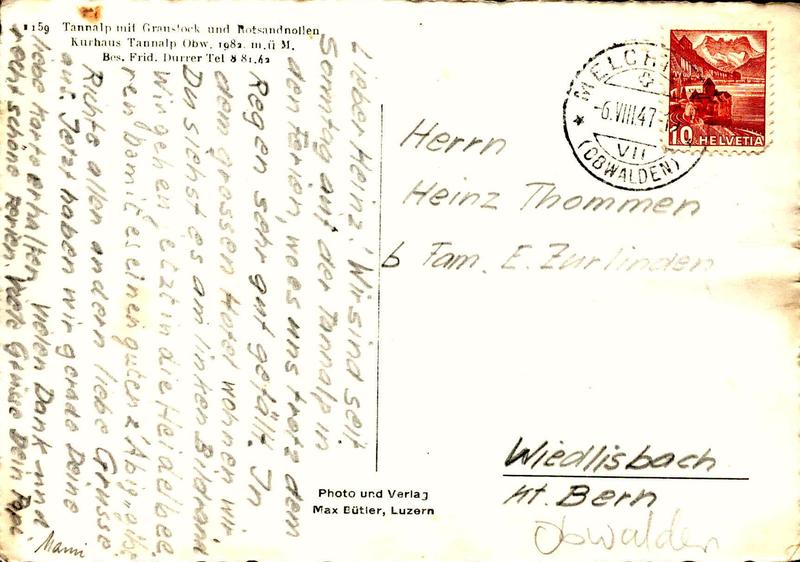 1159 Tannalp mit Graustock und Rotsandnollen
Kurhaus Tannalp Obw. 1982. m. ü M.
Bes. Frid. Durrer Tel 8 81.62
Lieber Heinz! Wir sind seit
Sonntag auf der Tannalp in
den Ferien, wo es uns trotz dem
Regen sehr gut gefällt. In
dem grossen Hotel wohnen wir
Du siehst es am linken Bildrand
Wir gehen jetzt in die Heidelbee
ren damit es einen guten z'Abig gibt.
Richte allen andern liebe Grüsse
aus. Jetzt haben wir gerade Deine
liebe Karte erhalten. Vielen Dank und
recht schöne Ferien. Viele Grüsse Dein Papi
Mami
Herrn
Heinz Thommen
b Fam. E. Zurlinden
Wiedlisbach
Kt. Bern
Obwalden
Photo und Verlag
Max Bütler, Luzern
-6.VIII.47-
VII
(OBWALDEN)
10 HELVETIA